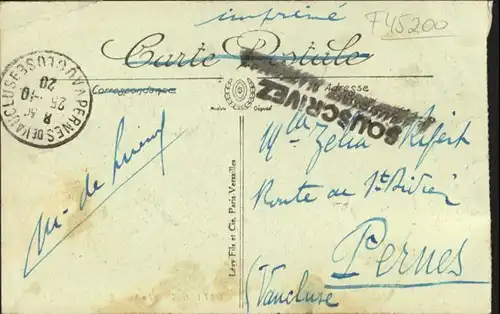 imprimé
F45200
Carte Postale
Correspondance
Adresse
Modèle Déposé
PERNES DE VAUCLUSE VAUCLUSE
8
25-10
20
SOUSCRIVEZ
Lévy Fils et Cie, Paris-Versailles
M. de
Mlle Zélia
Route de St
Pernes
(Vaucluse